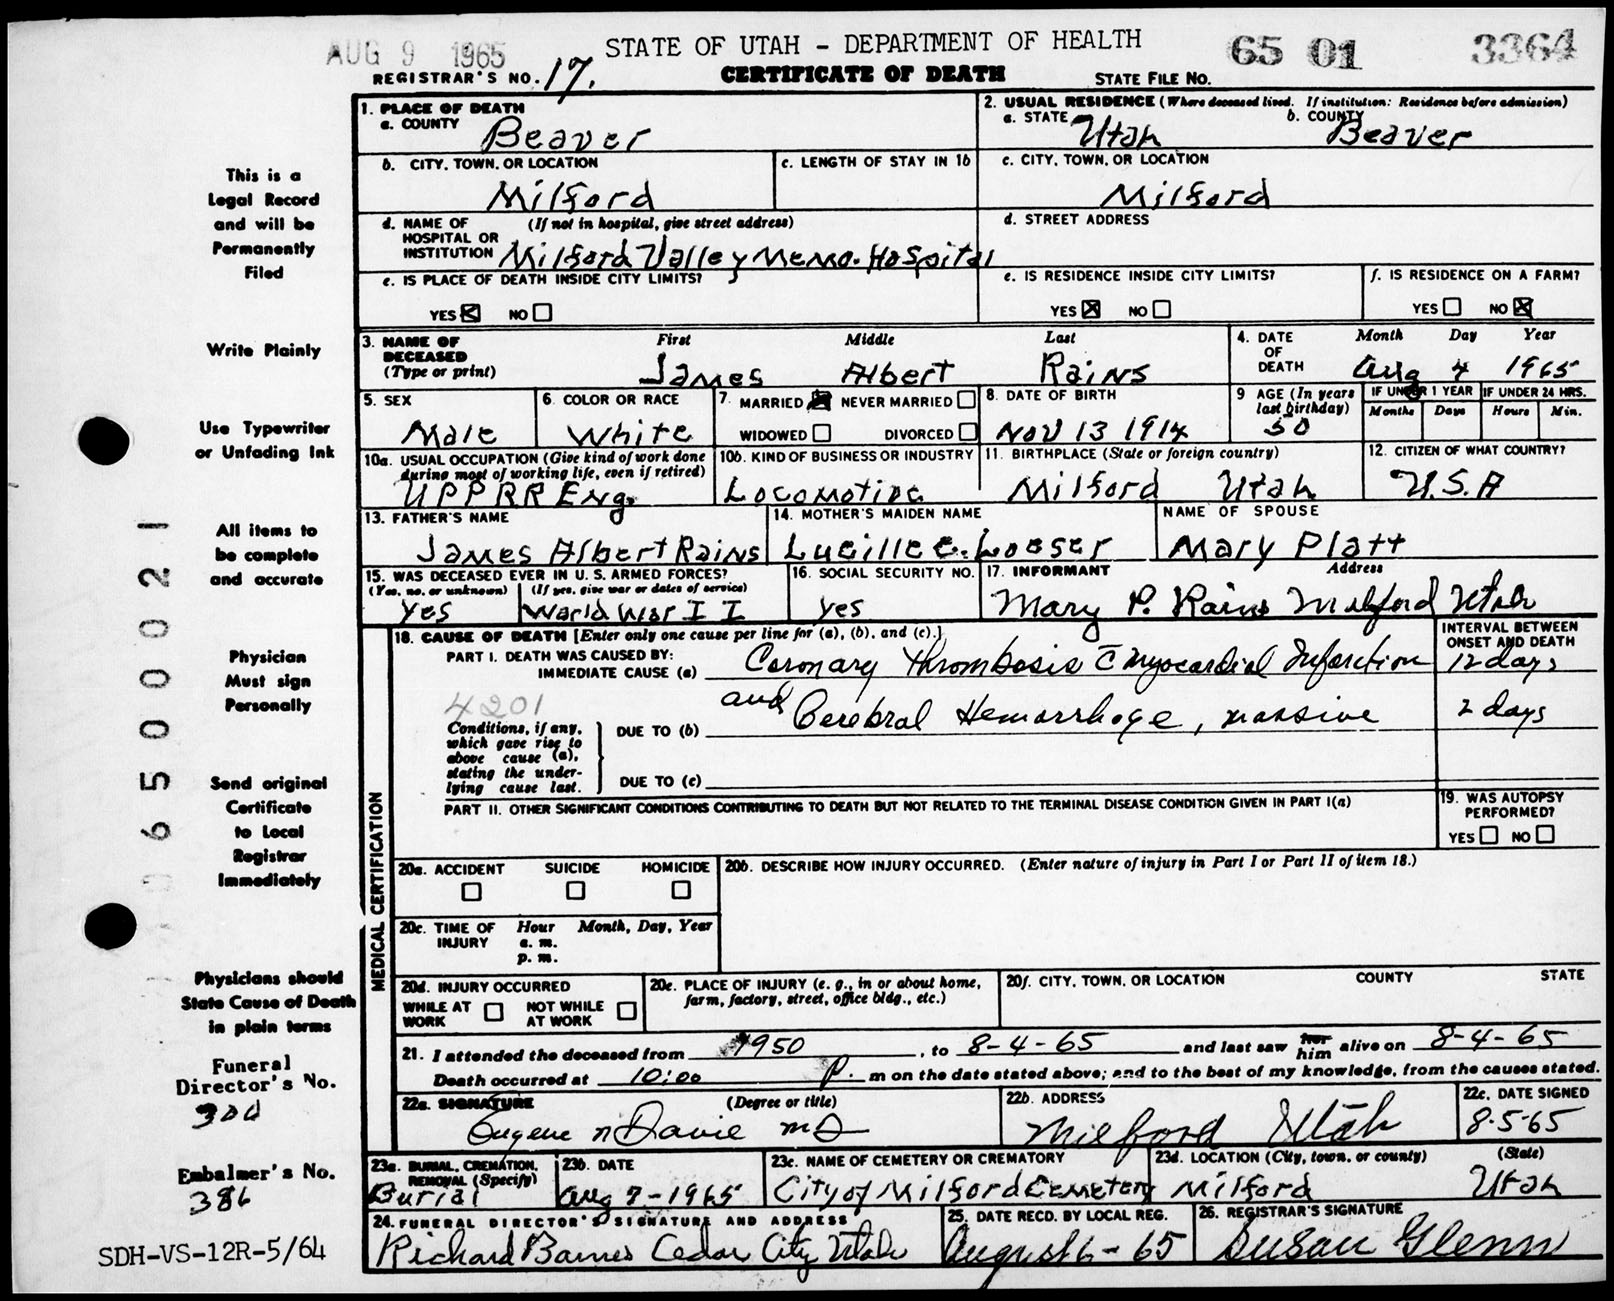 AUG 9 1965
STATE OF UTAH - DEPARTMENT OF HEALTH
65 01 3364
REGISTRAR'S NO. 17.
CERTIFICATE OF DEATH
STATE FILE NO.
This is a
Legal Record
and will be
Permanently
Filed
Write Plainly
Use Typewriter
or Unfading Ink
All items to
be complete
and accurate
Physician
Must sign
Personally
Send original
Certificate
to Local
Registrar
Immediately
Physicians should
State Cause of Death
in plain terms
Funeral
Director's No.
300
Embalmer's No.
386
SDH-VS-12R-5/64
0650021
1. PLACE OF DEATH
a. COUNTY Beaver
2. USUAL RESIDENCE (Where deceased lived. If institution: Residence before admission)
a. STATE Utah b. COUNTY Beaver
b. CITY, TOWN, OR LOCATION
Milford
c. LENGTH OF STAY IN 1b
c. CITY, TOWN, OR LOCATION
Milford
d. NAME OF HOSPITAL OR INSTITUTION (If not in hospital, give street address)
Milford Valley Memo. Hospital
d. STREET ADDRESS
e. IS PLACE OF DEATH INSIDE CITY LIMITS?
YES NO
e. IS RESIDENCE INSIDE CITY LIMITS?
YES NO
f. IS RESIDENCE ON A FARM?
YES NO
3. NAME OF DECEASED (Type or print)
First Middle Last
James Albert Rains
4. DATE OF DEATH
Month Day Year
Aug 4 1965
5. SEX
Male
6. COLOR OR RACE
White
7. MARRIED NEVER MARRIED
WIDOWED DIVORCED
8. DATE OF BIRTH
Nov 13 1914
9 AGE (In years last birthday)
50
IF UNDER 1 YEAR
Months Days
IF UNDER 24 HRS.
Hours Min.
10a. USUAL OCCUPATION (Give kind of work done during most of working life, even if retired)
UPPRR Eng.
10b. KIND OF BUSINESS OR INDUSTRY
Locomotive
11. BIRTHPLACE (State or foreign country)
Milford Utah
12. CITIZEN OF WHAT COUNTRY?
U.S.A
13. FATHER'S NAME
James Albert Rains
14. MOTHER'S MAIDEN NAME
Lucille C. Looser
NAME OF SPOUSE
Mary Platt
15. WAS DECEASED EVER IN U. S. ARMED FORCES?
(Yes, no, or unknown) (If yes, give war or dates of service)
yes World War II
16. SOCIAL SECURITY NO.
yes
17. INFORMANT Address
Mary P. Rains Milford Utah
MEDICAL CERTIFICATION
18. CAUSE OF DEATH [Enter only one cause per line for (a), (b), and (c).]
INTERVAL BETWEEN ONSET AND DEATH
PART I. DEATH WAS CAUSED BY:
IMMEDIATE CAUSE (a) Coronary Thrombosis c̄ Myocardial Infarction 12 days
4201
Conditions, if any, which gave rise to above cause (a), stating the underlying cause last.
and
DUE TO (b) Cerebral Hemorrhage, massive 2 days
DUE TO (c)
PART II. OTHER SIGNIFICANT CONDITIONS CONTRIBUTING TO DEATH BUT NOT RELATED TO THE TERMINAL DISEASE CONDITION GIVEN IN PART I(a)
19. WAS AUTOPSY PERFORMED?
YES NO
20a. ACCIDENT SUICIDE HOMICIDE
20b. DESCRIBE HOW INJURY OCCURRED. (Enter nature of injury in Part I or Part II of item 18.)
20c. TIME OF INJURY Hour Month, Day, Year
a. m.
p. m.
20d. INJURY OCCURRED
WHILE AT WORK NOT WHILE AT WORK
20e. PLACE OF INJURY (e. g., in or about home, farm, factory, street, office bldg., etc.)
20f. CITY, TOWN, OR LOCATION COUNTY STATE
21. I attended the deceased from 1950, to 8-4-65 and last saw her him alive on 8-4-65
Death occurred at 10:00 P. m on the date stated above; and to the best of my knowledge, from the causes stated.
22a. SIGNATURE (Degree or title)
Eugene N Davie MD
22b. ADDRESS
Milford Utah
22c. DATE SIGNED
8-5-65
23a. BURIAL, CREMATION, REMOVAL (Specify)
Burial
23b. DATE
Aug 7-1965
23c. NAME OF CEMETERY OR CREMATORY
City of Milford Cemetery
23d. LOCATION (City, town, or county) (State)
Milford Utah
24. FUNERAL DIRECTOR'S SIGNATURE AND ADDRESS
Richard Barnes Cedar City Utah
25. DATE RECD. BY LOCAL REG.
August 6-65
26. REGISTRAR'S SIGNATURE
Susan Glenn